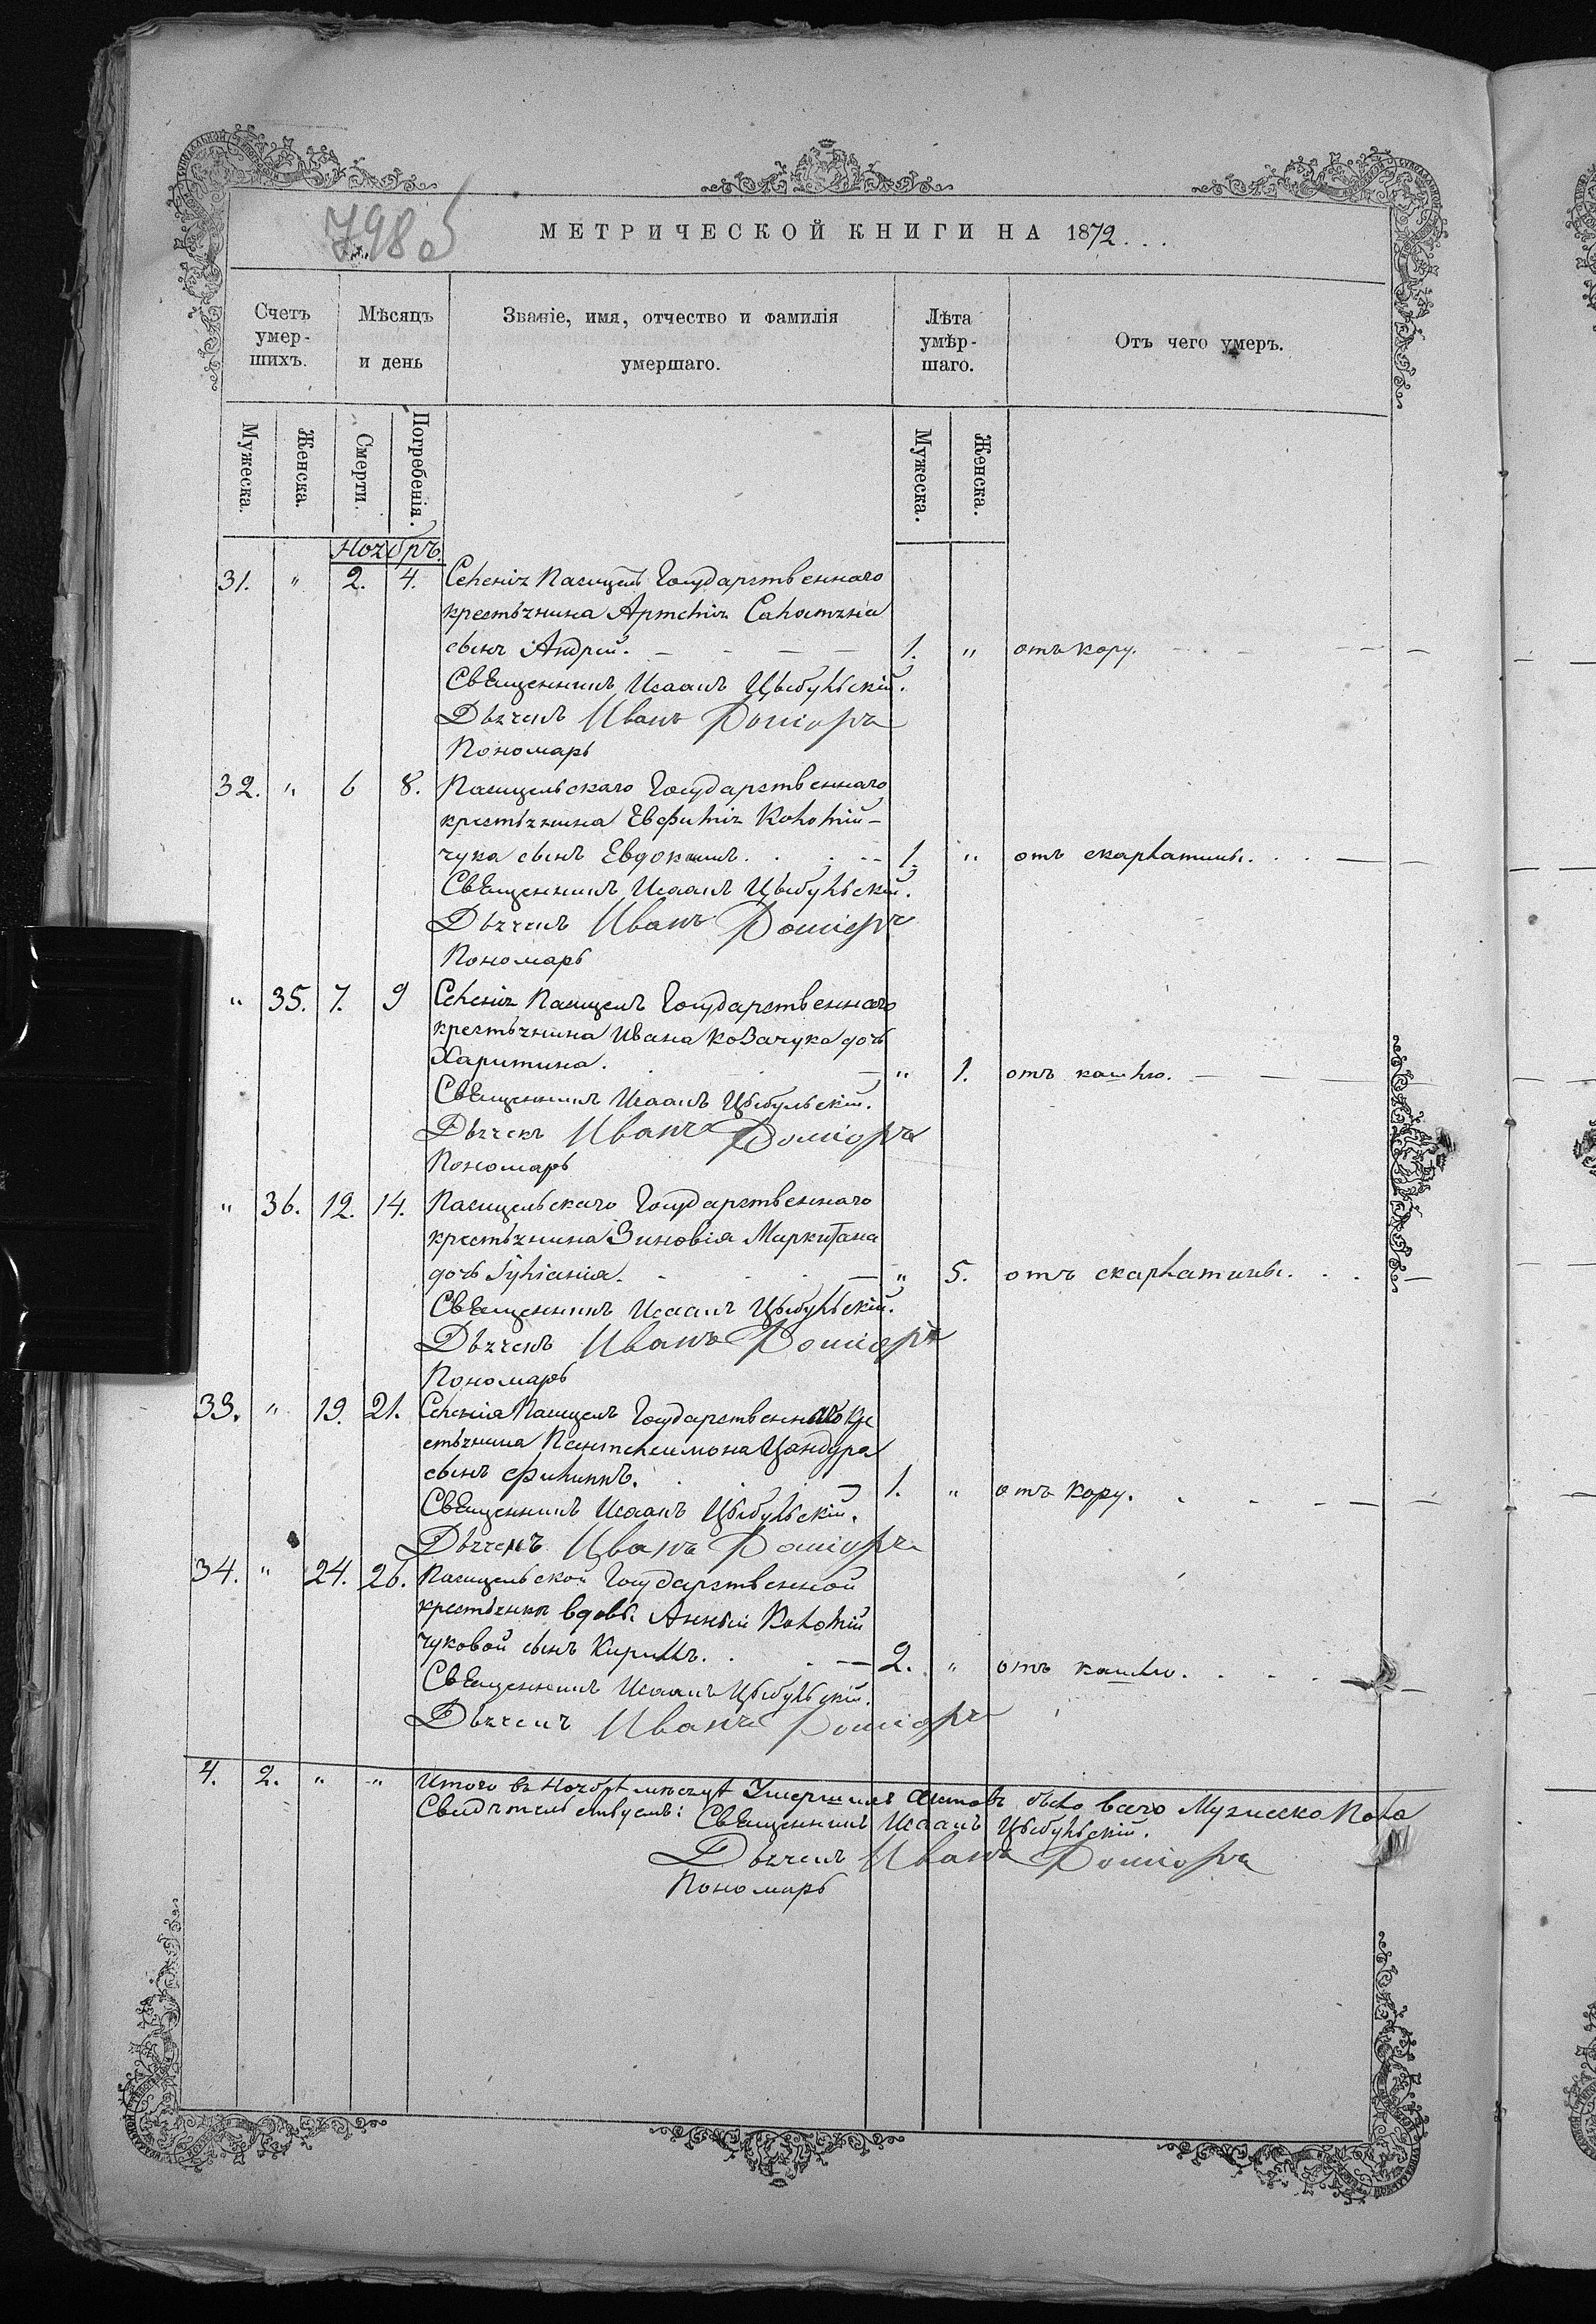 798 об
МЕТРИЧЕСКОЙ КНИГИ НА 1872...
Счетъ умер-шихъ. Мѣсяцъ и день Званіе, имя, отчество и фамилія умершаго. Лѣта умѣр-шаго. Отъ чего умеръ.
Мужеска. Женска. Смерти. Погребенія. Мужеска. Женска.
Ноябрь.
31. " 2. 4. Селенія Пасицелъ Государственнаго
крестьянина Артемія Саломаніа
сынъ Андрій. 1. " отъ кору.
Священникъ Исаакъ Цыбульскій.
Дьячекъ Иванъ
Пономарь
32. " 6 8. Пасицельскаго Государственнаго
крестьянина Евфимія Коломій-
чука сынъ Евдокимъ. 1. " отъ скарлатины.
Священникъ Исаакъ Цыбульскій.
Дьячекъ Иванъ
Пономарь
" 35. 7. 9 Селенія Пасицелъ Государственнаго
крестьянина Ивана Козачука дочь
Харитина. " 1. отъ кашлю.
Священникъ Исаакъ Цыбульскій.
Дьячекъ Иванъ
Пономарь
" 36. 12. 14. Пасицельскаго Государственнаго
крестьянина Зиновія Маркитана
дочь Іуліанія. " 5. отъ скарлатины.
Священникъ Исаакъ Цыбульскій.
Дьячекъ Иванъ
Пономарь
33. " 19. 21. Селенія Пасицелъ Государственнаго кре
стьянина Пантелимона Цандура
сынъ Филиппъ. 1. " отъ кору.
Священникъ Исаакъ Цыбульскій.
Дьячекъ Иванъ
34. " 24. 26. Пасицельской Государственной
крестьянки вдовы Анны Коломій
чуковой сынъ Кириллъ. 2. " отъ кашлю.
Священникъ Исаакъ Цыбульскій.
Дьячекъ Иванъ
4. 2. " " Итого въ Ноябрѣ мѣсяцѣ Умершихъ было всего Мужеско Пола
Свидѣтельствуемъ: Священникъ Исаакъ Цыбульскій.
Дьячекъ Иванъ
Пономарь